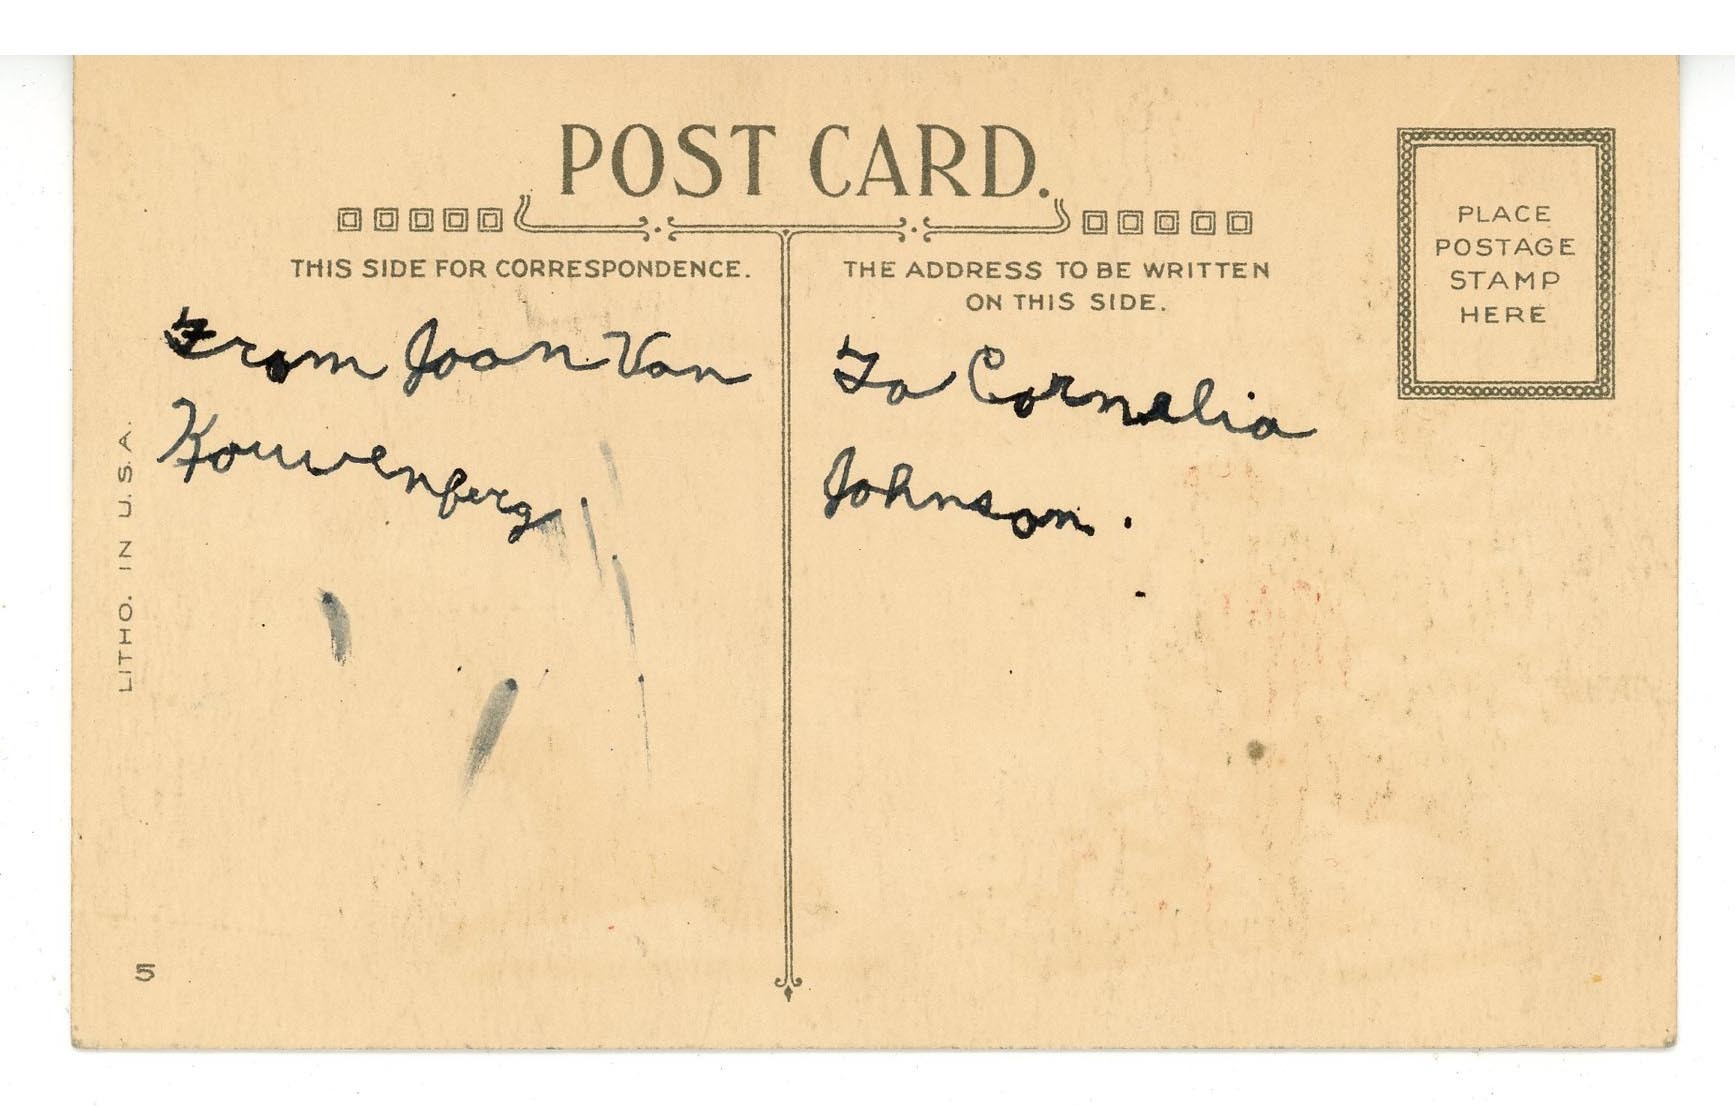 POST CARD.
THIS SIDE FOR CORRESPONDENCE.
From Joan Van
Kouwenberg
THE ADDRESS TO BE WRITTEN
ON THIS SIDE.
To Cornelia
Johnson.
PLACE
POSTAGE
STAMP
HERE
LITHO. IN U.S.A.
5